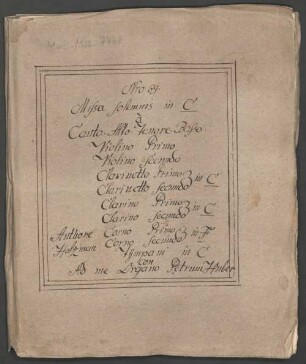 Mus. Ms.
Nro 69.
Missa Solemnis in C
à
Canto Alto Tenore Basso
Violino Primo
Violino Secundo
Clarinetto Primo
Clarinetto Secundo in C
Clarino Primo
Clarino Secundo in C
Authore Corno Primo
Holzman Corno Secundo in F
Tympani in C
con
Ad me Organo Petrum Huber